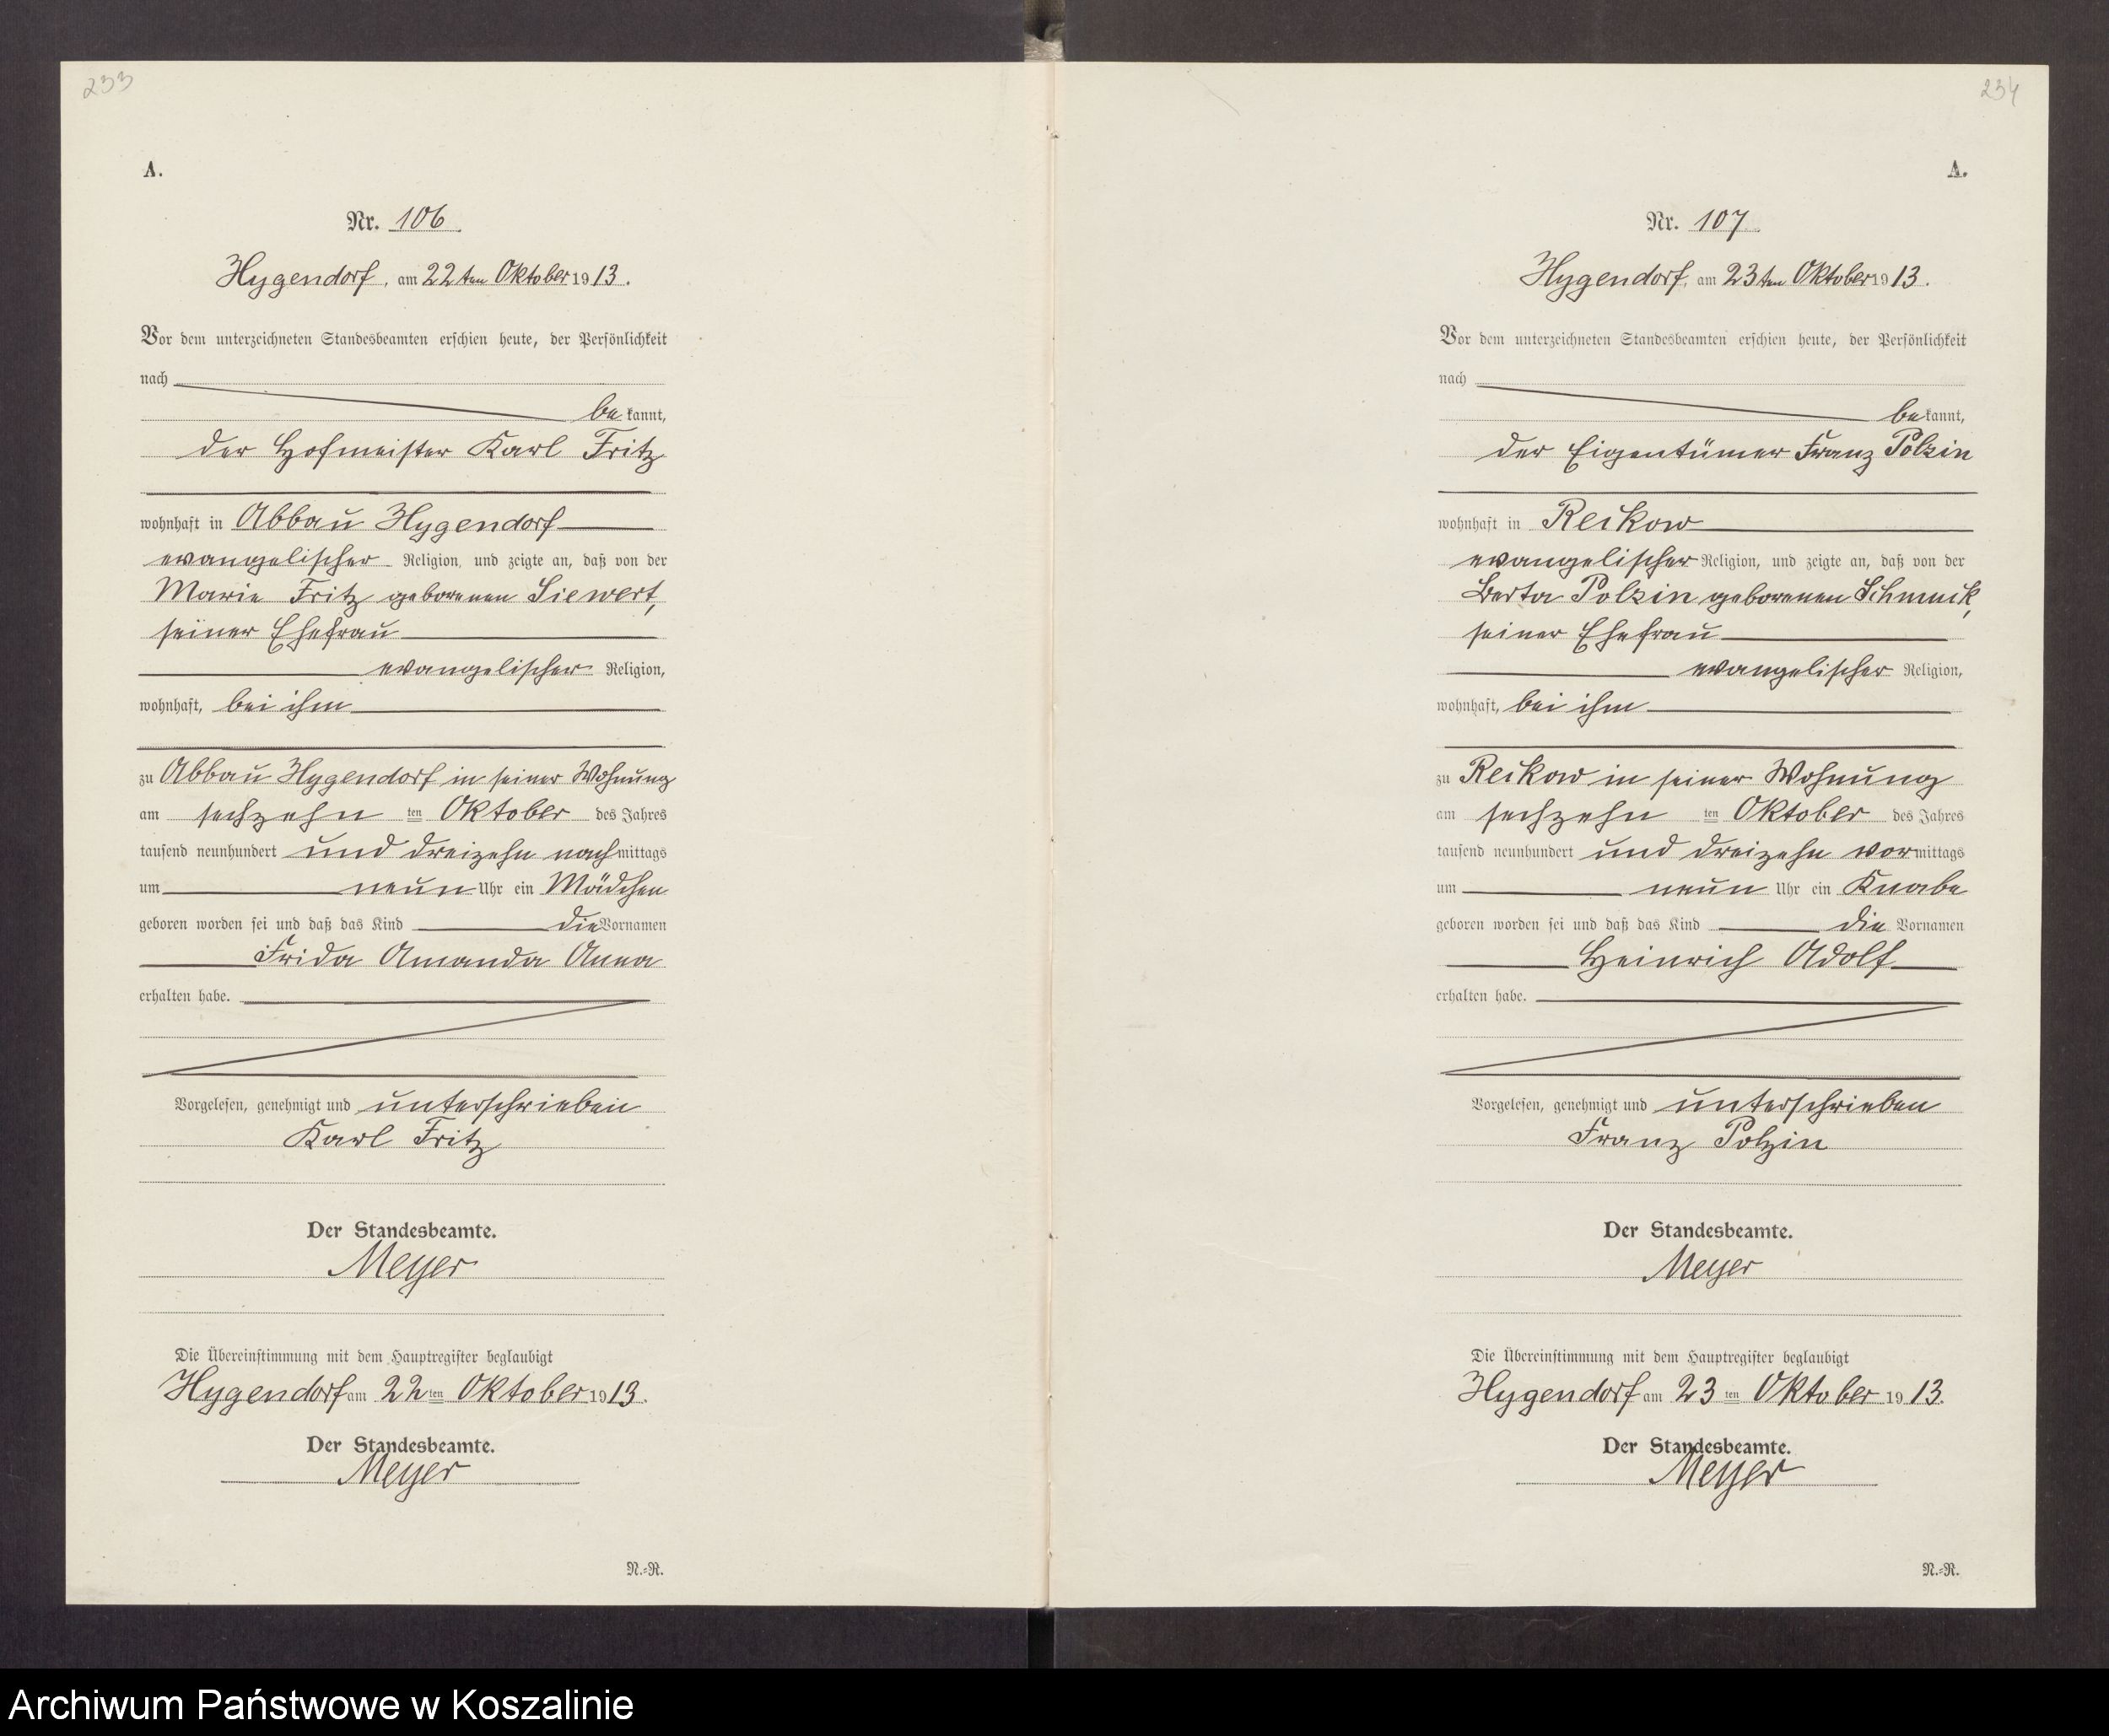 233
A.
Nr. 106.
Hygendorf, am 22ten Oktober 1913.
Vor dem unterzeichneten Standesbeamten erschien heute, der Persönlichkeit
nach
bekannt,
der Hofmeister Karl Fritz
wohnhaft in Abbau Hygendorf
evangelischer Religion, und zeigte an, daß von der
Marie Fritz geborenen Siewert,
seiner Ehefrau
evangelischer Religion,
wohnhaft, bei ihm
zu Abbau Hygendorf in seiner Wohnung
am sechzehn ten Oktober des Jahres
tausend neunhundert und dreizehn nachmittags
um neun Uhr ein Mädchen
geboren worden sei und daß das Kind die Vornamen
Frida Amanda Anna
erhalten habe.
Vorgelesen, genehmigt und unterschrieben
Karl Fritz
Der Standesbeamte.
Meyer
Die Übereinstimmung mit dem Hauptregister beglaubigt
Hygendorf am 22ten Oktober 1913.
Der Standesbeamte.
Meyer
N.-R.
234
A.
Nr. 107.
Hygendorf, am 23ten Oktober 1913.
Vor dem unterzeichneten Standesbeamten erschien heute, der Persönlichkeit
nach
bekannt,
der Eigentümer Franz Polzin
wohnhaft in Reikow
evangelischer Religion, und zeigte an, daß von der
Berta Polzin geborenen
seiner Ehefrau
evangelischer Religion,
wohnhaft, bei ihm
zu Reikow in seiner Wohnung
am sechzehn ten Oktober des Jahres
tausend neunhundert und dreizehn vormittags
um neun Uhr ein Knabe
geboren worden sei und daß das Kind die Vornamen
Heinrich Adolf
erhalten habe.
Vorgelesen, genehmigt und unterschrieben
Franz Polzin
Der Standesbeamte.
Meyer
Die Übereinstimmung mit dem Hauptregister beglaubigt
Hygendorf am 23 ten Oktober 1913.
Der Standesbeamte.
Meyer
N.-R.
Archiwum Państwowe w Koszalinie